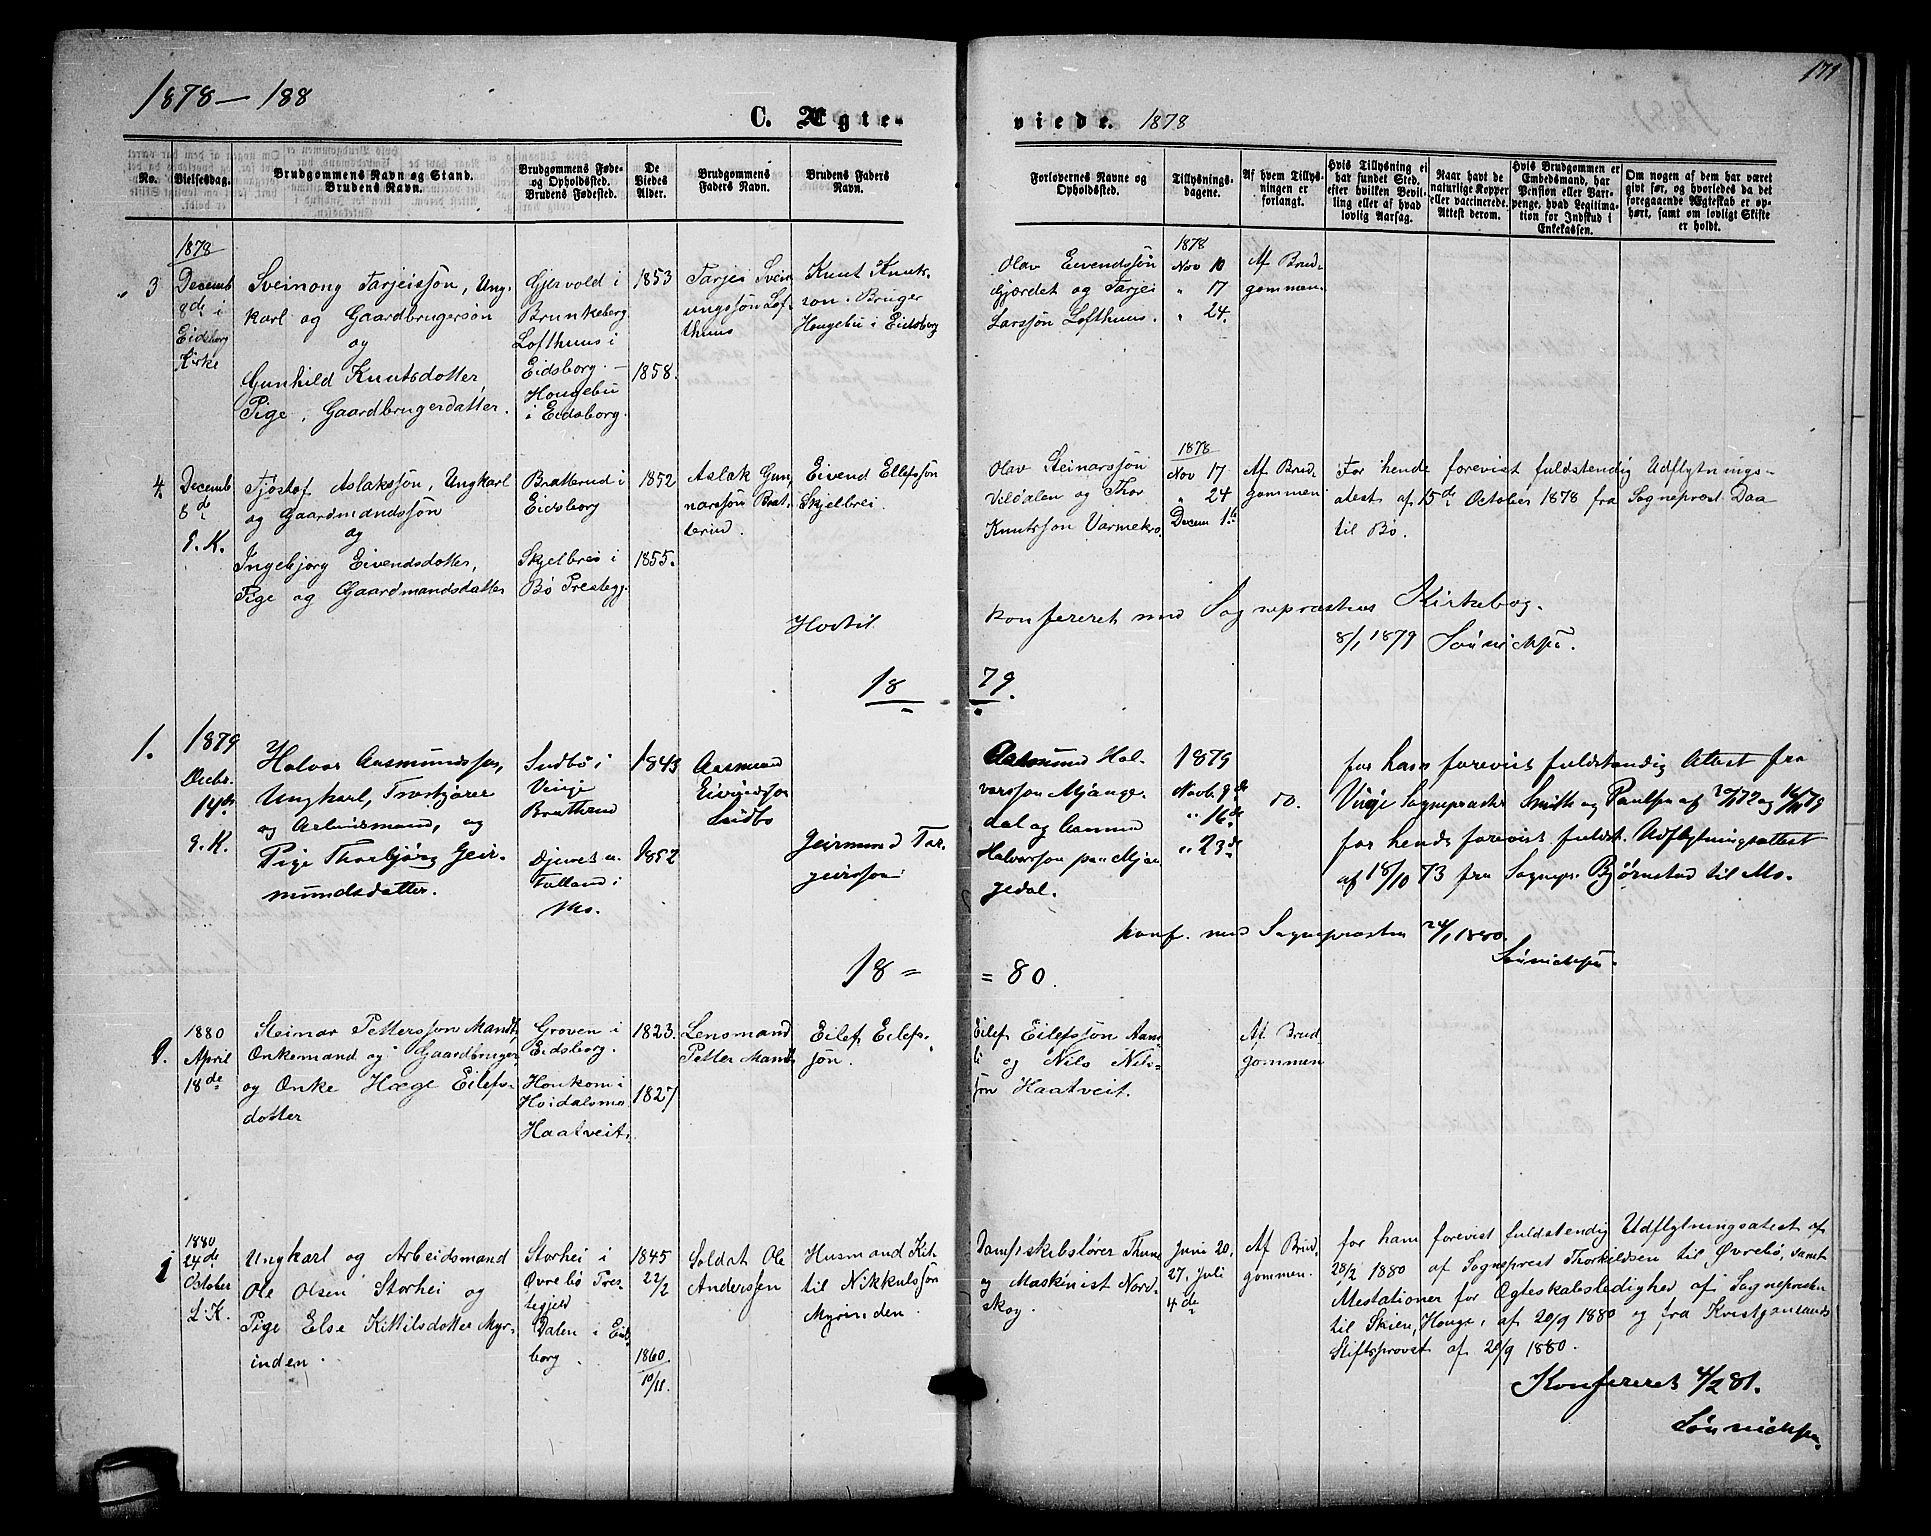 1878 — 188
171
C. Ægte-
viede. 1878
No.
Vielsesdag.
Brudgommens Navn og Stand.
Brudens Navn.
Brudgommens Føde-
og Opholdssted.
Brudens Fødested.
De
Viedes
Alder.
Brudgommens
Faders Navn.
Brudens Faders
Navn.
Forlovernes Navne og
Opholdssted.
Tillysnings-
dagene.
Af hvem Tillys-
ningen er
forlangt.
Hvis Tillysning ei
har fundet Sted,
efter hvilken Bevil-
ling eller af hvad
lovlig Aarsag.
Naar havt de
naturlige Kopper
eller vaccinerede.
Attest derom.
Hvis Brudgommen er
Embedsmand, har
Pension eller Vart-
penge, hvad Legitima-
tion for Indskud i
Enkekassen.
Om nogen af dem har været
gift før, og hvorledes da det
foregaaende Ægteskab er op-
hørt, samt om lovligt Skifte
er holdt.
3
1878
Decemb
8de i
Eidsborg
Kirke
Sveinong Tarjeissøn, Ung-
karl og Gaardbrugersøn
og
Gunhild Knutsdotter,
Pige, Gaardbrugerdatter.
Gjersvold i
Brunkeberg
Lofthuus i
Eidsborg. —
Hougebu
i Eidsborg.
1853
1858.
Tarjei Svein
ungssøn Lof-
thuus
Knut Knuts-
son. Bruger
Hougebu i Eidsborg
Olav Eivendssøn
Gjærdet og Tarjei
Larssjøn Lofthuus.
1878
Nov 10
" 17
" 24.
Af Brud-
gommen.
4
Decemb
8de
E. K.
Tjöstof Aslakssön, Ungkarl
og Gaardmandssön
og
Ingebjørg Eivendsdotter,
Pige og Gaardmandsdatter
Bratterud i
Eidsborg
Skjelbrei i
Bø Prestegj.
1852
1855.
Aslak Gun-
narssön Brat-
terud.
Eivend Ellefssön
Skjelbrei.
Olav Steinarssön
Vildalen og Thor
Knutsson Varmekro
1878
Nov 17
" 24
Decem 1ste
Af Brud
gommen
For hende forevist fuldstendig Udflytnings-
atest af 15de October 1878 fra Sogneprest Daa
til Bø.
Hertil
konfereret med Sognepræstens Kirkebog.
8/1 1879 Sönnichsen.
18 79.
1.
1879
Decbr.
14de
E. K.
Halvor Aasmundssen,
Ungkarl,
og Arbeidsmand, og
Pige Thorbjørg Geir-
mundsdatter.
Sudbø i
Vinje
Bratterud
Djuvet u.
Tulland i
Mo.
1843
1852
Aasmund
Eivindsson
Sudbø
Geirmund Tar-
geirsson
Aasmund Hal-
varsson Mjånge-
dal og Aanund
Halvorsson paa Mjån
gedal.
1879
Novb. 9de
" 16de
" 23de
Do.
for ham forevist fuldstændig Attest fra
Vinje Sognepræster Smith og Paulsen af
for hende forevist fuldst. Udflytningsattest
af 18/10 73 fra Sognepr. Bjørnstad til Mo.
konf. med Sognepræsten 24/1 1880.
Sönnichsen.
18 = = 80.
1880
April
18de
Steinar Pettersson Mandt,
Enkemand og Gaardbruger
og Enke Hæge Eilefs-
dotter
Groven i
Eidsborg.
Houkom i
Hoidalsmo
Haatveit.
1823.
1827
Lensmand
Petter Mandt
Eilef Eilefs-
sjøn.
Eilef Eilefssøn Aam-
li og Nils Nils-
søn Haatveit.
Af Brud
gommen
1
1880
24de
October
L. K.
Ungkarl og Arbeidsmand
Ole Olsen Storhei og
Pige Else Kittilsdotter Myr-
inden.
Storhei i
Øvrebø Pres-
tegjeld
Dalen i Eids
borg.
1845
22/2
1860
10/11.
Soldat Ole
Anderssen
Husmand Kit-
til Nikkulssøn
Myrinden.
Damfskibsfører Thune
og Maskinist Nord-
skog.
Juni 20,
27, Juli
4de
Af Brud
gommen.
for ham forevist fuldstendig Udflytningsatest af
28/2 1880 af Sogneprest Thorkildsen til Øvrebö, samt
Atestationer for Ægteskabsledighed af Sognepresten
til Skien, Houge, af 20/9 1880 og fra Kristjansands
Stiftsprovst af 20/9 1880.
Konfereret 4/2 81.
Sönnichsen.